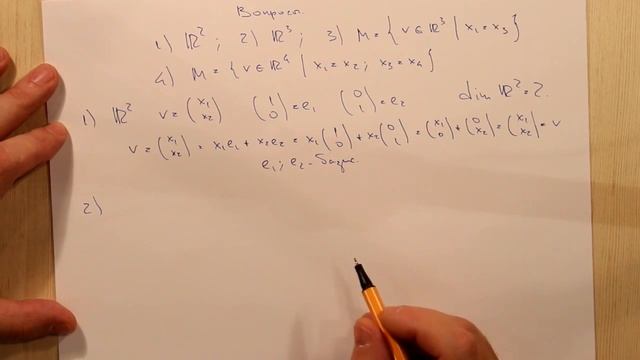 Вопросы.
1) ℝ² ; 2) ℝ³ ; 3) M = { v ∈ ℝ³ | x₁ = x₃ }
4) M = { v ∈ ℝ⁴ | x₁ = x₂ ; x₃ = x₄ }
1) ℝ² v = (x₁ x₂) (1 0) = e₁ (0 1) = e₂ dim ℝ² = 2.
v = (x₁ x₂) = x₁e₁ + x₂e₂ = x₁(1 0) + x₂(0 1) = (x₁ 0) + (0 x₂) = (x₁ x₂) = v
e₁ ; e₂ - базис.
2)